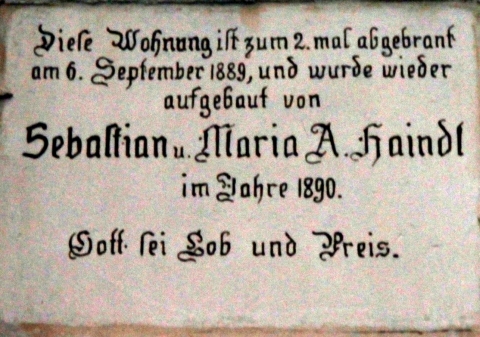 Diese Wohnung ist zum 2. mal abgebrant
am 6. September 1889, und wurde wieder
aufgebaut von
Sebastian u. Maria A. Haindl
im Jahre 1890.
Gott sei Lob und Preis.